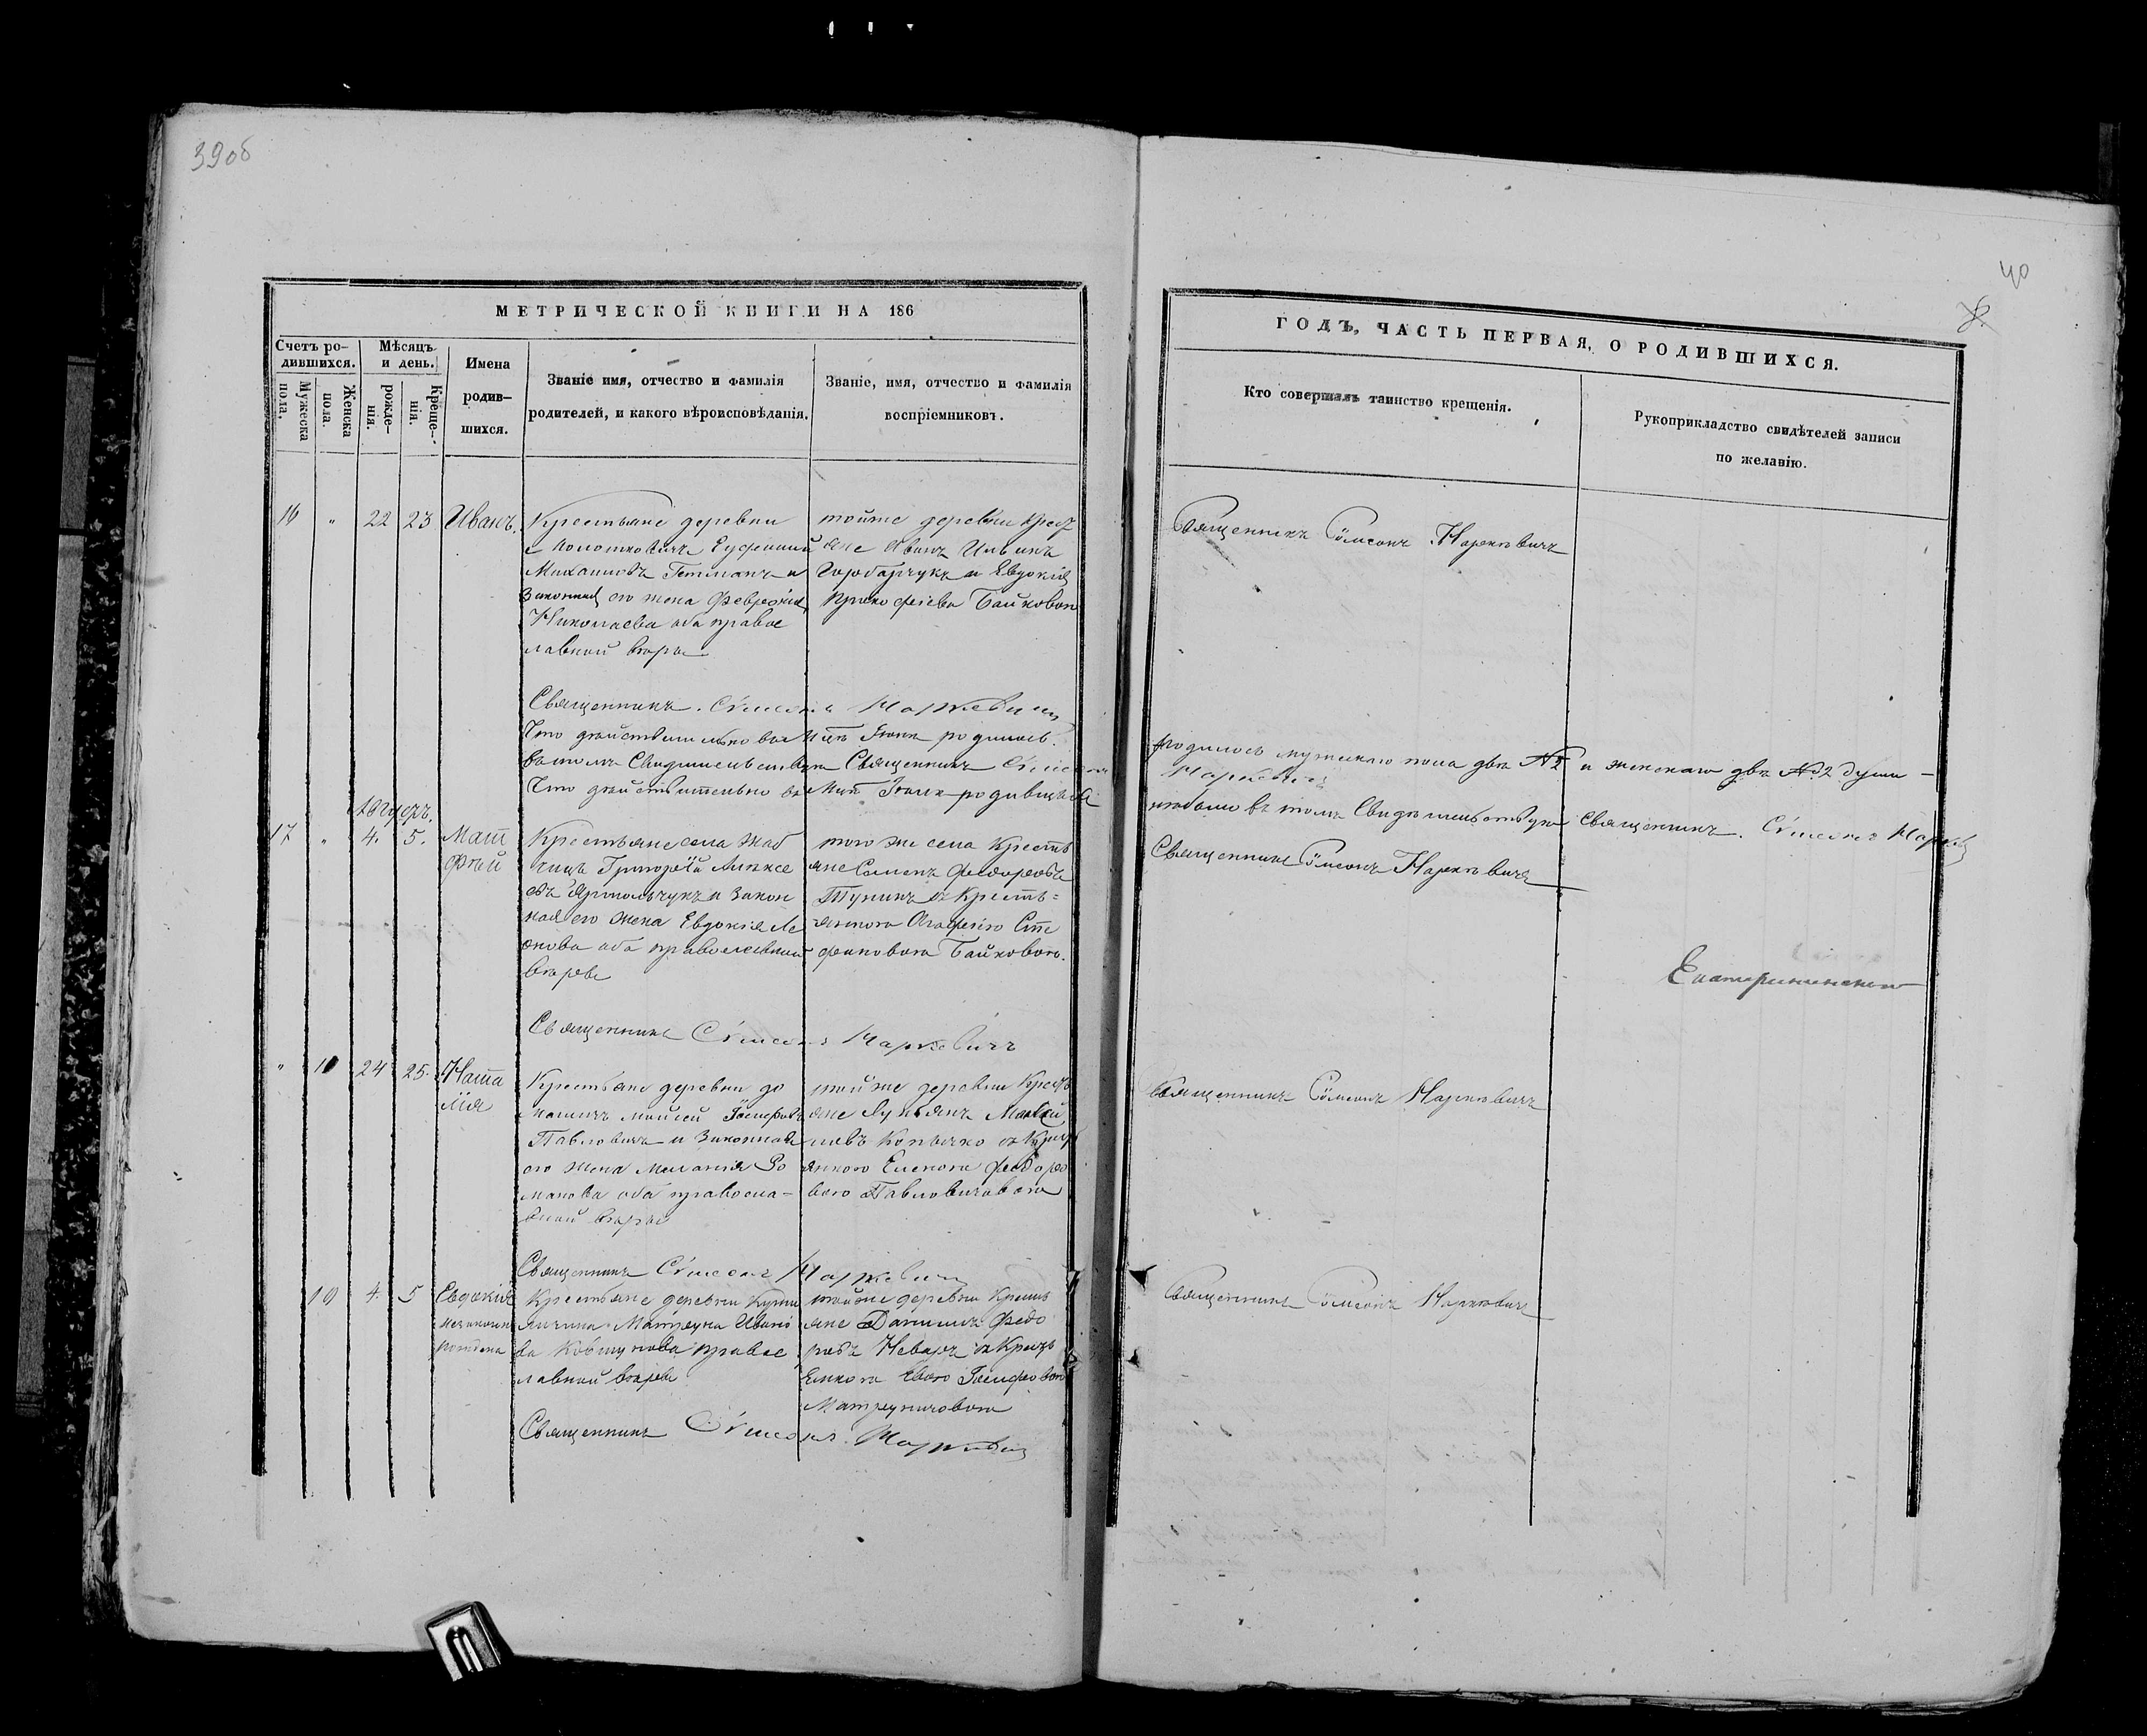 39об
МЕТРИЧЕСКОЙ КНИГИ НА 186
Счетъ ро-
дившихся.
Мужеска
пола.
Женска
пола.
Мѣсяцъ
и день.
рожде-
нія.
Креще-
нія.
Имена
родив-
шихся.
Званіе имя, отчество и фамилія
родителей, и какого вѣроисповѣданія.
Званіе, имя, отчество и фамилія
воспріемниковъ.
16 " 22 23 Иванъ.
Крестьяне деревни
Михаиловъ Гетманъ и
Законная его жена Феврония
Николаева оба право
славной вѣры
тойже деревни Крест
яне Иванъ Ильинъ
Горбачукъ и Евдокія
Прокофіева Байковою
Священникъ. Сѵмеонъ Маркевичъ
Что дѣйствительно въ Мцѣ Іюлѣ родилось
въ томъ Свидѣтельствую Священникъ Сѵмеонъ
Что дѣйствительно въ Мцѣ Іюлѣ родившихся
Августъ.
17 " 4. 5. Мат
фѣй
Крестьяне села Жаб
чицъ Григорій Алексе
евъ Ярмольчукъ и Закон
ная его жена Евдокія Ле
онова оба православной
вѣры
того же села Кресть
яне Семенъ Федоровъ
Тупикъ съ Кресть=
янкою Агафіею Сте
фановою Байковою.
Священникъ Сѵмеонъ Маркевичъ
" 18 24 25. Ната
лія
Крестьяне деревни До
машичъ Моисей Іосифовъ
Павловичъ и Законная
его жена Меланія Ро
манова оба правосла-
вной вѣры
тойже деревни Крест
яне Лукьянъ
съ Крест
янкою Еленою Федоро
вою Павловичовою
Священникъ Сѵмеонъ Маркевичъ
19 4. 5 Евдокія
незаконно
рождена
Крестьяне деревни
Матрена Ивано
ва Ковтунова правос
лавной вѣры
тойже деревни Кресть
яне Даніилъ Федо
ровъ Неваръ съ Крест
янкою Евою Іосифовою
Священникъ Сѵмеонъ. Маркевичъ
40
ГОДЪ, ЧАСТЬ ПЕРВАЯ, О РОДИВШИХСЯ.
Кто совершалъ таинство крещенія.
Рукоприкладство свидѣтелей записи
по желанію.
Священникъ Сѵмеонъ Маркевичъ
родилось мужескаго пола двѣ №2 и женскаго двѣ №2 души —
Маркевичъ
небыло въ томъ Свидѣтельствую Священникъ. Сѵмеонъ Маркевичъ
Священникъ Сѵмеонъ Маркевичъ
Священникъ Сѵмеонъ Маркевичъ
Священникъ Сѵмеонъ Маркевичъ